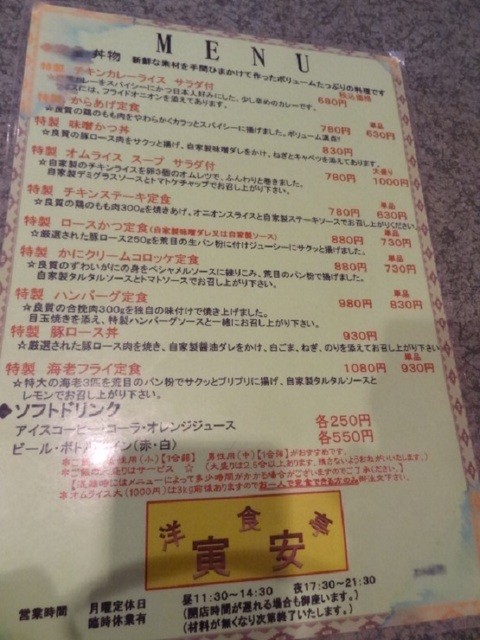 MENU
丼物 新鮮な素材を手間ひまかけて作ったボリュームたっぷりの料理です
税込価格
特製 チキンカレーライス サラダ付 680円
カレーをスパイシーにかつ日本人好みにした、少し辛めのカレーです。
には、フライドオニオンを添えてあります。
特製 からあげ定食 780円 単品 630円
☆良質の鶏のもも肉をやわらかくカラッとスパイシーに揚げました。ボリューム満点!
特製 味噌かつ丼 830円
☆良質の豚ロース肉をサクッと揚げ、自家製味噌ダレをかけ、ねぎとキャベツを添えてあります。
特製 オムライス スープ サラダ付 780円 大盛り 1000円
☆自家製のチキンライスを卵3個のオムレツで、ふんわりと巻きました。
自家製デミグラスソースとトマトケチャップでお召し上がり下さい。
特製 チキンステーキ定食 780円 単品 630円
☆良質の鶏のもも肉300gを焼きあげ、オニオンスライスと自家製ステーキソースでお召し上がりください
特製 ロースかつ定食(自家製味噌ダレ又は自家製ソース) 880円 単品 730円
☆厳選された豚ロース250gを荒目の生パン粉に付けジューシーにサクッと揚げました。
特製 かにクリームコロッケ定食 880円 単品 730円
☆良質のずわいがにの身をベシャメルソースに練りこみ、荒目のパン粉で揚げました。
自家製タルタルソースとトマトソースでお召し上がり下さい。
特製 ハンバーグ定食 980円 単品 830円
☆良質の合挽肉300gを独自の味付けで焼き上げました。
目玉焼きを添え、特製ハンバーグソースと一緒にお召し上がり下さい。
特製 豚ロース丼 930円
☆厳選された豚ロース肉を焼き、自家製醤油ダレをかけ、白ごま、ねぎ、のりを添えてお召し上がり下さい
特製 海老フライ定食 1080円 単品 930円
☆特大の海老3匹を荒目のパン粉でサクッとプリプリに揚げ、自家製タルタルソースと
レモンでお召し上がり下さい。
◆ソフトドリンク
アイスコーヒー・コーラ・オレンジジュース 各250円
ビール・ボトルワイン(赤・白) 各550円
(小)【1合弱】 男性用(中)【1合強】がおすすめです。
大盛りはサービス ☆(大盛りは2.5合以上あります、残さないようおねがいいたします。)
【混雑時にはメニューによって多少時間がかかる場合がございますのでご了承ください。】
オムライス大(1000円)は3kg前後ありますのでお一人で完食できる方のみ御注文下さい。
洋食亭
寅安
営業時間 月曜定休日 昼11:30~14:30 夜17:30~21:30
臨時休業有 (開店時間が遅れる場合も御座います。)
(材料が無くなり次第終了いたします。)